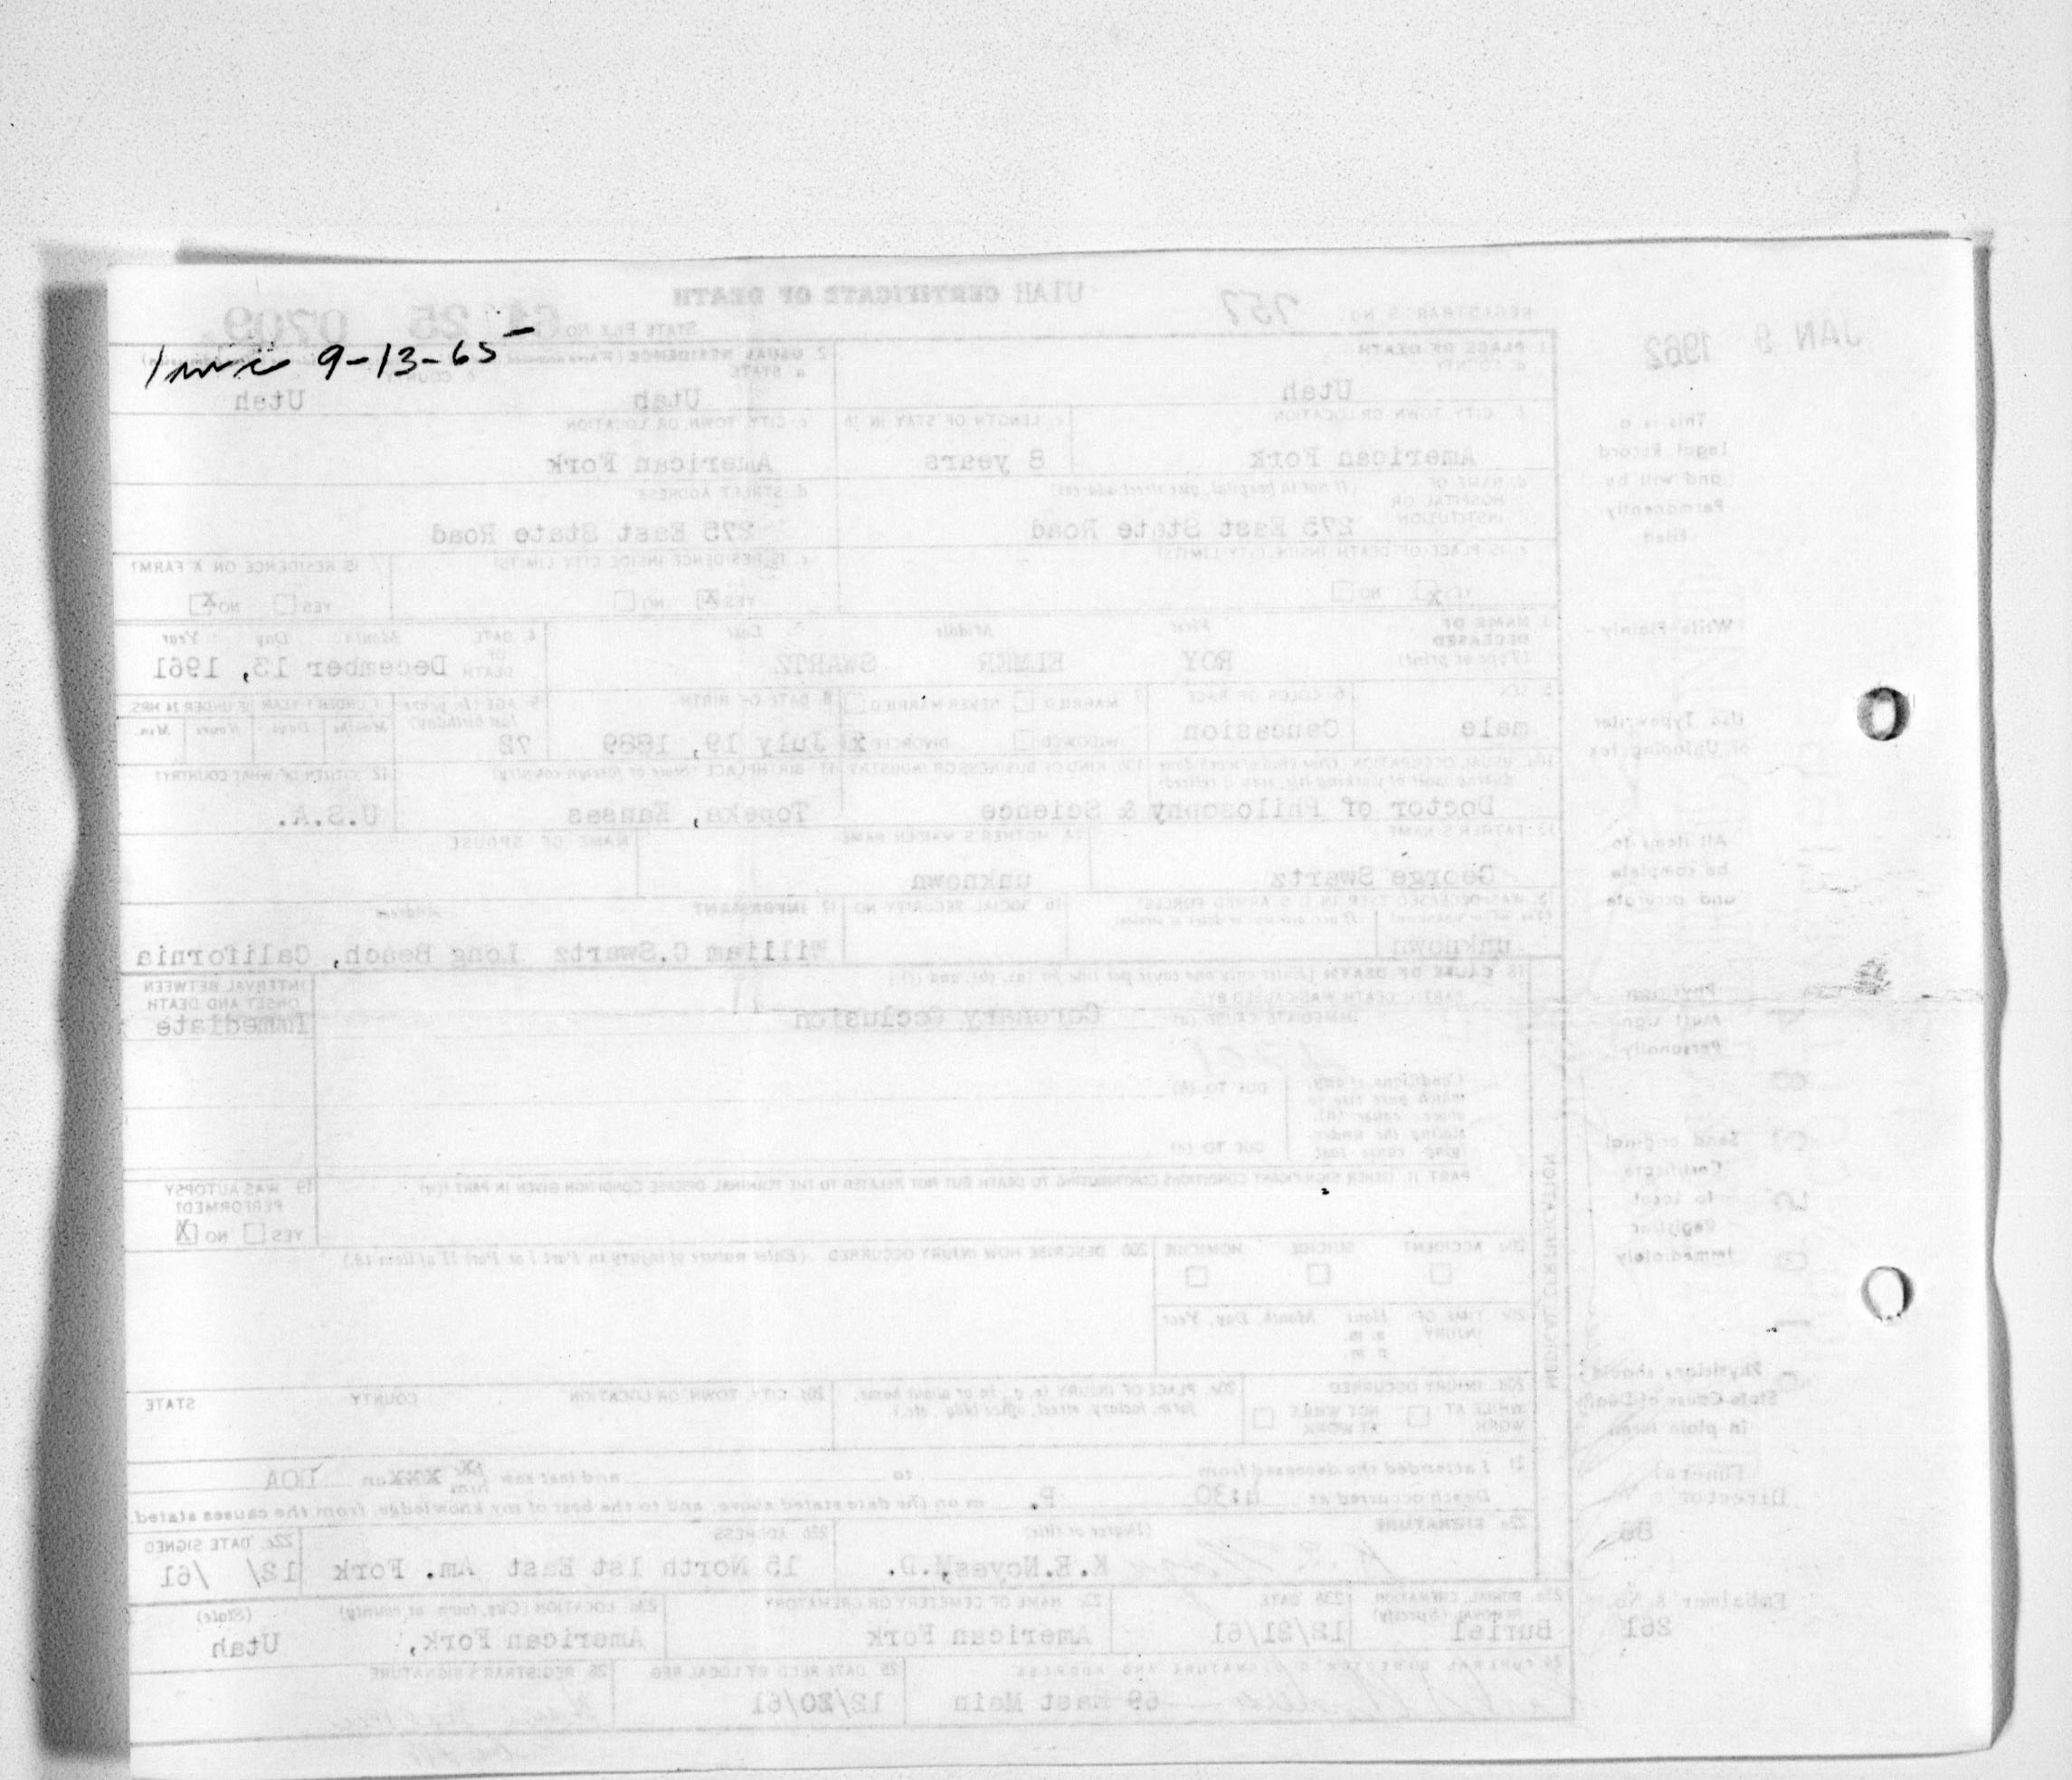 9-13-65
JAN 9 1962
REGISTRAR'S NO. 757
UTAH CERTIFICATE OF DEATH
STATE FILE NO. 61 25 0709
1 PLACE OF DEATH
a. COUNTY
Utah
2 USUAL RESIDENCE
a. STATE
Utah
b. COUNTY
Utah
b. CITY, TOWN OR LOCATION
American Fork
c. LENGTH OF STAY IN 1b
8 years
c. CITY, TOWN, OR LOCATION
American Fork
d. NAME OF HOSPITAL OR INSTITUTION
(If not in hospital, give street address)
275 East State Road
d. STREET ADDRESS
275 East State Road
e. IS PLACE OF DEATH INSIDE CITY LIMITS?
YES X NO
e. IS RESIDENCE INSIDE CITY LIMITS?
YES X NO
f. IS RESIDENCE ON A FARM?
YES NO X
3. NAME OF DECEASED
(Type or print)
First Middle Last
ROY ELMER SWARTZ
4. DATE OF DEATH
Month Day Year
December 13, 1961
5 SEX
male
6 COLOR OR RACE
Caucasion
7 MARRIED NEVER MARRIED
WIDOWED DIVORCED X
8 DATE OF BIRTH
July 19, 1889
9. AGE (In years last birthday)
72
IF UNDER 1 YEAR IF UNDER 24 HRS.
Months Days Hours Min.
10a. USUAL OCCUPATION (Give kind of work done during most of working life, even if retired)
10b. KIND OF BUSINESS OR INDUSTRY
Doctor of Philosophy & Science
11 BIRTHPLACE (State or foreign country)
Topeka, Kansas
12 CITIZEN OF WHAT COUNTRY?
U.S.A.
13 FATHER'S NAME
George Swartz
14 MOTHER'S MAIDEN NAME
unknown
NAME OF SPOUSE
15 WAS DECEASED EVER IN U.S. ARMED FORCES?
unknown
16 SOCIAL SECURITY NO.
17 INFORMANT Address
William C.Swartz Long Beach, California
18 CAUSE OF DEATH [Enter only one cause per line for (a), (b), and (c).]
PART I. DEATH WAS CAUSED BY:
IMMEDIATE CAUSE (a) Coronary Occlusion
INTERVAL BETWEEN ONSET AND DEATH
Immediate
Conditions, if any, which gave rise to above cause (a), stating the underlying cause last
DUE TO (b)
DUE TO (c)
PART II. OTHER SIGNIFICANT CONDITIONS CONTRIBUTING TO DEATH BUT NOT RELATED TO THE TERMINAL DISEASE CONDITION GIVEN IN PART I(a)
19 WAS AUTOPSY PERFORMED?
YES NO X
20a. ACCIDENT SUICIDE HOMICIDE
20b. DESCRIBE HOW INJURY OCCURRED. (Enter nature of injury in Part I or Part II of item 18.)
20c. TIME OF INJURY Hour Month, Day, Year
a. m.
p. m.
20d. INJURY OCCURRED
WHILE AT WORK NOT WHILE AT WORK
20e. PLACE OF INJURY (e. g., in or about home, farm, factory, street, office bldg., etc.)
20f. CITY, TOWN, OR LOCATION COUNTY STATE
21 I attended the deceased from to and last saw him DOA
Death occurred at 4:30 P. m on the date stated above, and to the best of my knowledge, from the causes stated.
22a SIGNATURE (Degree or title)
K.E.Noyes,M.D.
22b ADDRESS
15 North 1st East Am. Fork
22c. DATE SIGNED
12/ /61
23a. BURIAL, CREMATION, REMOVAL (Specify)
Burial
23b DATE
12/21/61
23c. NAME OF CEMETERY OR CREMATORY
American Fork
23d. LOCATION (City, town, or county) (State)
American Fork, Utah
24 FUNERAL DIRECTOR'S SIGNATURE AND ADDRESS
69 East Main
25 DATE RECD BY LOCAL REG
12/20/61
26 REGISTRAR'S SIGNATURE
This is a
Legal Record
and will be
Permanently
Filed
Write Plainly
Use Typewriter
All items to
be complete
and accurate
Physician
Must sign
Personally
Send original
Certificate
to Local
Registrar
Immediately
Physicians should
State Cause of Death
in plain terms
Funeral
Director's
Embalmer's No.
261
MEDICAL CERTIFICATION